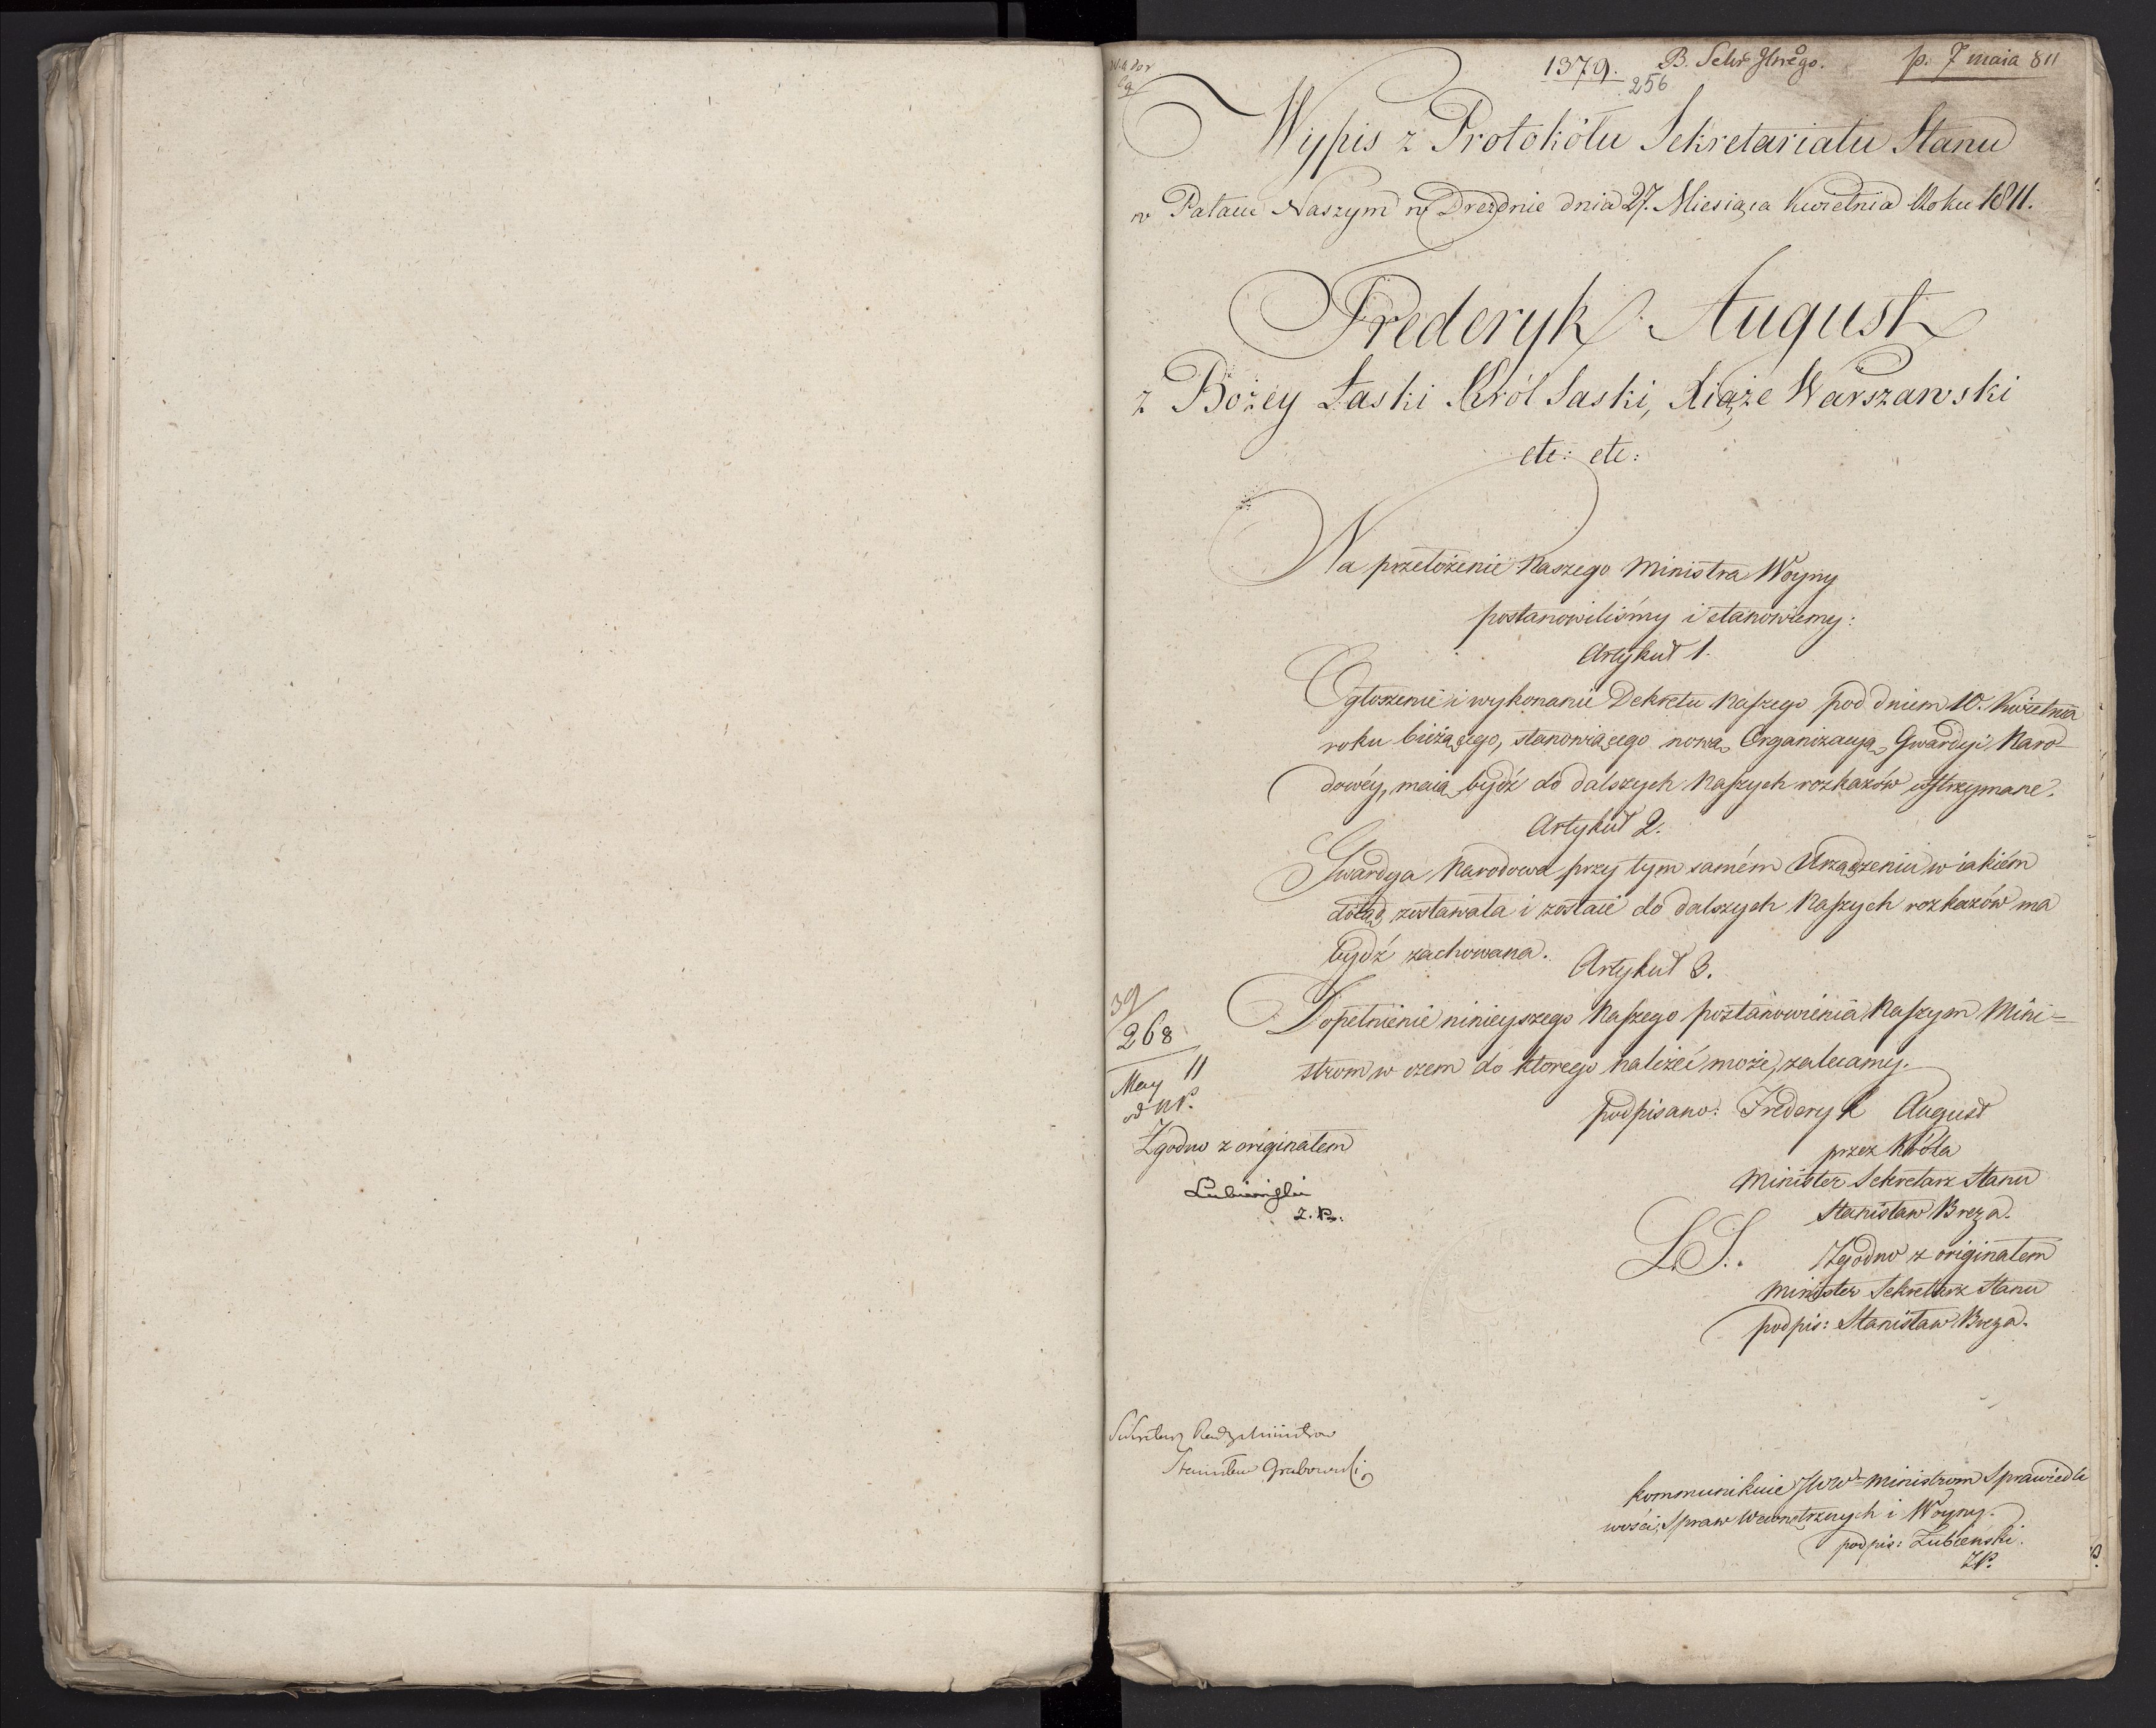 1379. B. Sekr Jlnego. p. 7 maia 811
256
Wypis z Protokółu Sekretariatu Stanu
w Pałacu Naszym w Dreznie dnia 27. Miesiąca Kwietnia Roku 1811.
Frederyk August
z Bożey Łaski Król Saski, Xiąże Warszawski
etc: etc:
Na przełożenie Naszego Ministra Woyny
postanowiliśmy i stanowiemy:
Artykuł 1.
Ogłoszenie i wykonanie Dekretu Naszego pod dniem 10. Kwietnia
roku bieżącego, stanowiącego nową Organizacyą Gwardyi Naro-
dowéy, maią bydź do dalszych Naszych rozkazów wstrzymane.
Artykuł 2.
Gwardya Narodowa przy tym samém Urządzeniu w iakiém
dotąd zostawała i zostaie do dalszych Naszych rozkazów ma
bydź zachowana.
Artykuł 3.
Dopełnienie ninieyszego Naszego postanowienia Naszym Mini=
strom w czem do ktorego należeć może, zalecamy.
podpisano: Frederyk August
przez Króla
Minister Sekretarz Stanu
Stanisław Breza.
L.S. Zgodno z originałem
Minister Sekretarz Stanu
podpis: Stanisław Breza.
39
268
May 11
Zgodno z originałem
Lubieński
Sekretarz Rady Ministrow
Stanisław Grabowski
Kommunikuie JWW Ministrom Sprawiedli
wości, Spraw Wewnętrznych i Woyny.
podpis: Łubienski.